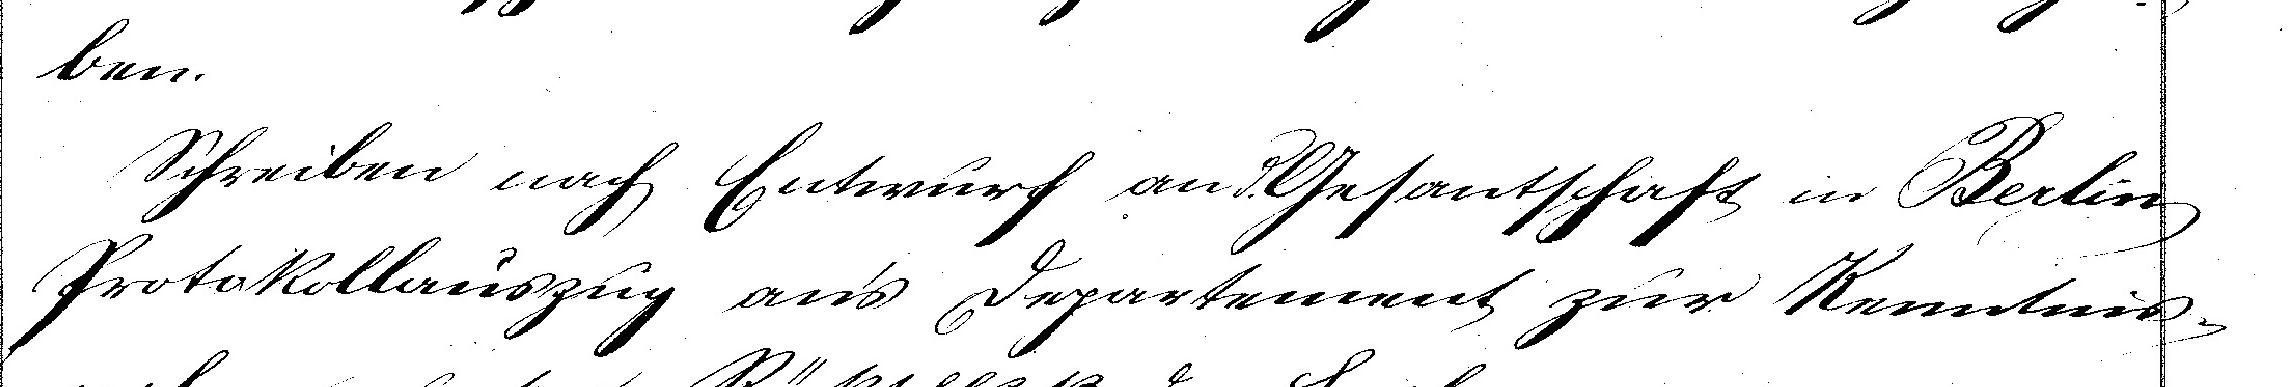 ben.
Schreiben nach Entwurf an d. Gesantschaft in Berlin
Protokollauszug an's Departement zur Kenntnis-